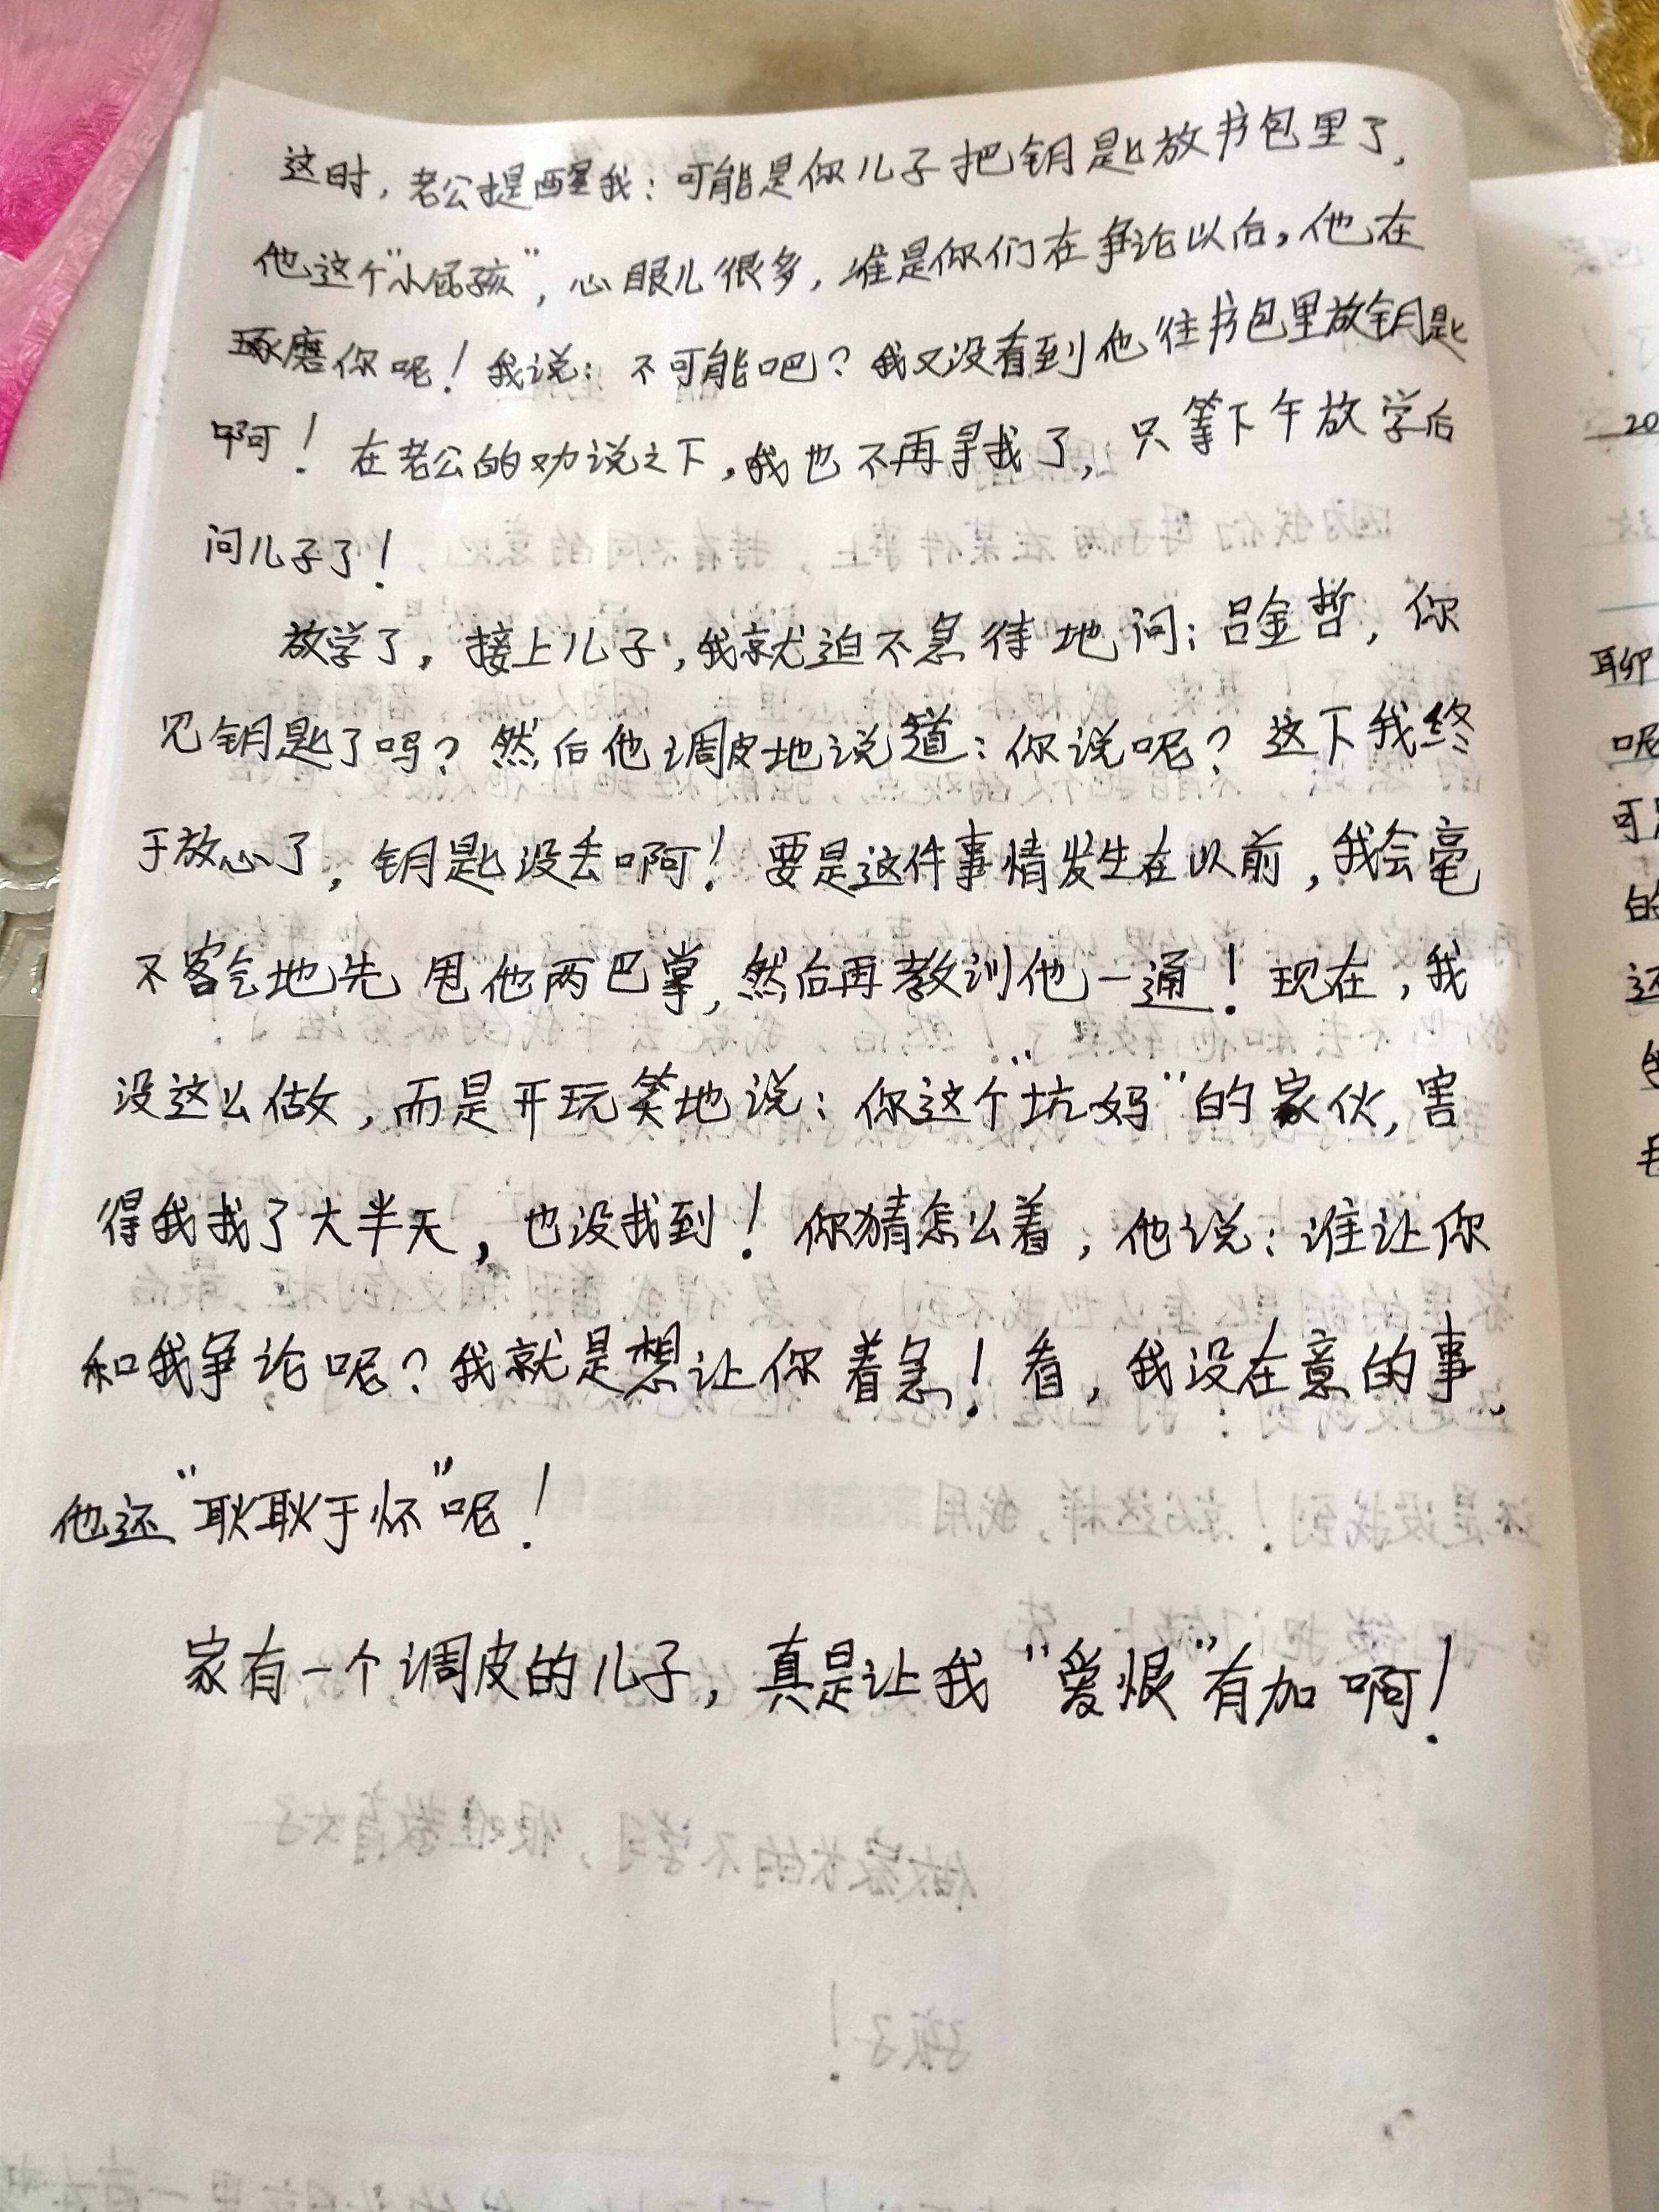 这时，老公提醒我：可能是你儿子把钥匙放书包里了，
他这个“小屁孩”，心眼儿很多，准是你们在争论以后，他在
琢磨你呢！我说：不可能吧？我又没看到他往书包里放钥匙
啊！在老公的劝说之下，我也不再寻找了，只等下午放学后
问儿子了！
放学了，接上儿子，我就迫不急待地问：吕金哲，你
见钥匙了吗？然后他调皮地说道：你说呢？这下我终
于放心了，钥匙没丢啊！要是这件事情发生在以前，我会毫
不客气地先甩他两巴掌，然后再教训他一通！现在，我
没这么做，而是开玩笑地说：你这个“坑妈”的家伙，害
得我找了大半天，也没找到！你猜怎么着，他说：谁让你
和我争论呢？我就是想让你着急！看，我没在意的事，
他还“耿耿于怀”呢！
家有一个调皮的儿子，真是让我“爱恨”有加啊！
20
聊
呢
可
的
还